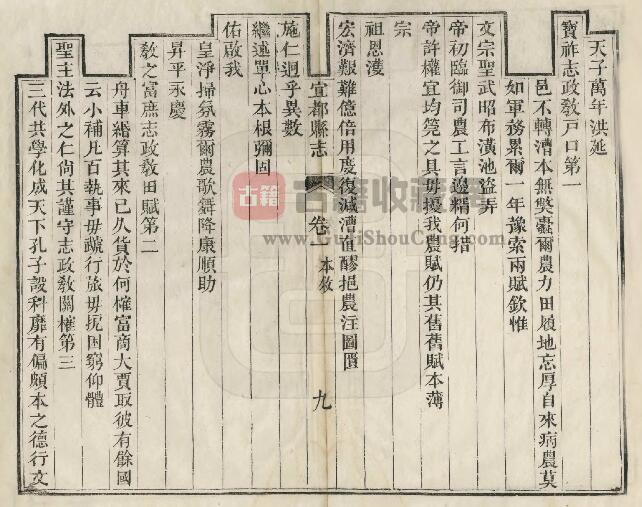 天子萬年洪延
寶祚志政敎戸口第一
邑不轉漕本無獘蠧爾農力田履地忘厚自來病農莫
如軍務累爾一年豫索兩賦欽惟
文宗聖武昭布潢池盜弄
帝初臨御司農工言邊精何指
帝許權宜均筦之具毋擾我農賦仍其舊舊賦本薄
宗
祖恩濩
宏濟艱難億倍用慶復減漕直醪挹農注圖匱
宜都縣志
卷一
本敘
九
施仁迥乎異數
繼述單心本根彌固
佑啟我
皇淨掃氛霧爾農歌舞降康順助
昇平永慶
敎之富庶志政敎田賦第二
舟車緡算其來已久貨於何榷富商大賈取彼有餘國
云小補凡百執事毋虣行旅毋扼困窮仰體
聖主法外之仁尙其謹守志政敎關榷第三
三代共學化成天下孔子設科靡有偏頗本之德行文
古籍
古籍收藏
www.GuJiShouCang.com